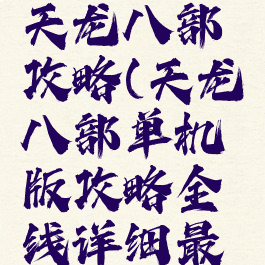 天龙八部
攻略(天龙
八部单机
版攻略全
线详细最